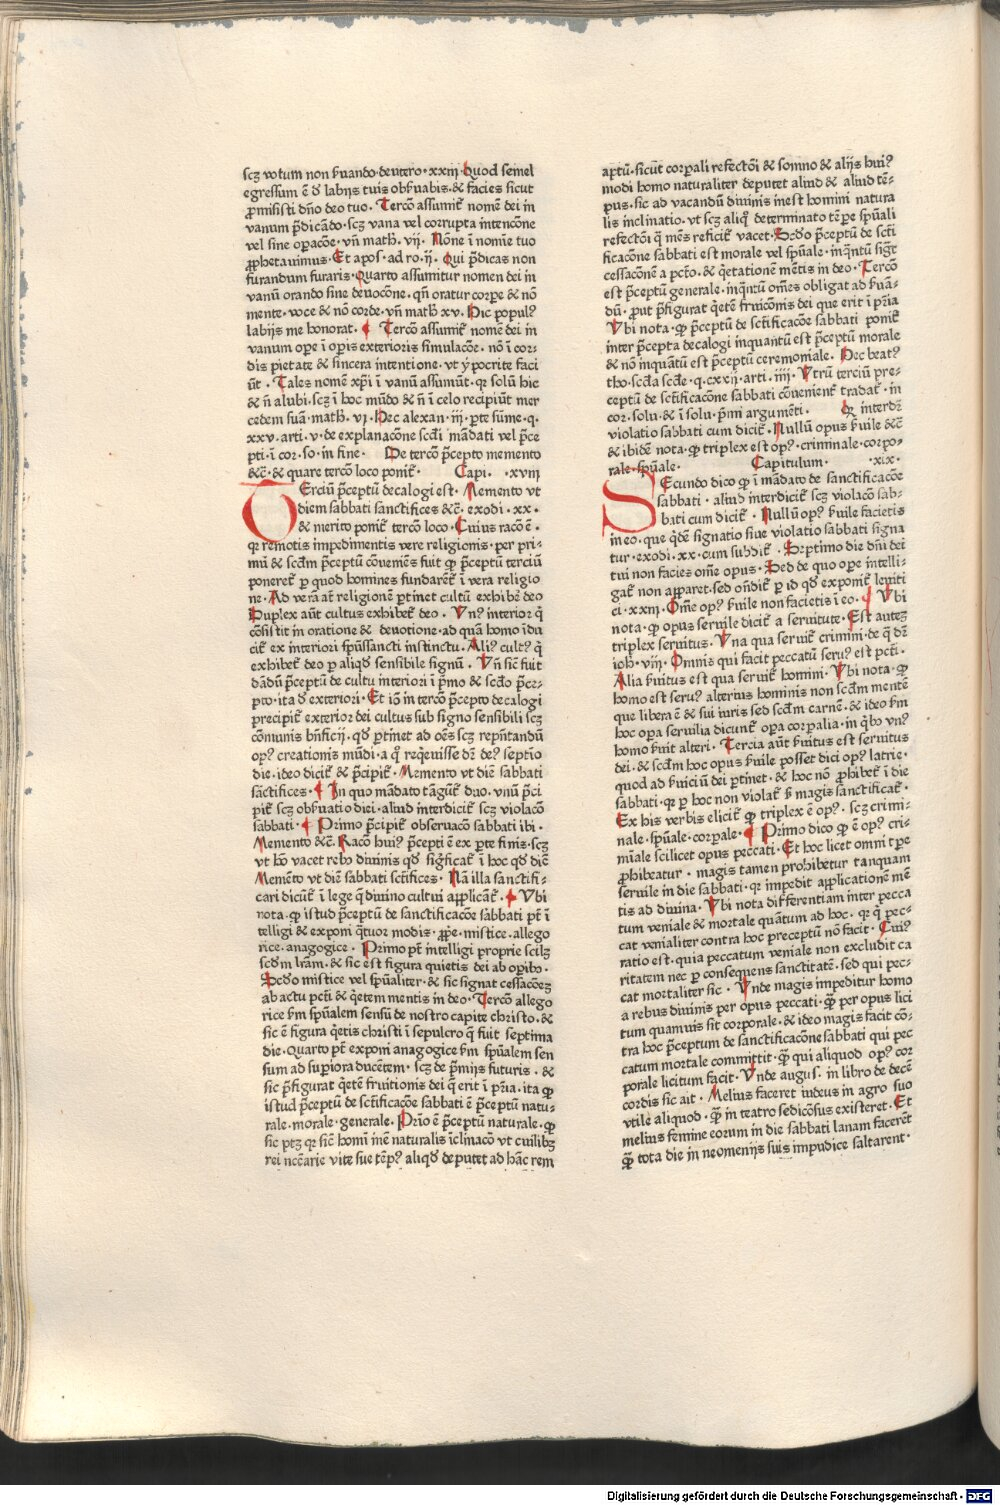 scꝫ votum non ẜuando·deutero·xxiij·Quod semel
egressum ē d̕ labijs tuis obẜuabis·& facies sicut
ꝓmisisti dn̄o deo tuo· Tercō assumit᷑ nomē dei in
vanum p̄dicādo·scꝫ vana vel corrupta intencōne
vel sine oꝑacōe·vn̄ math·vij· Nōne ī noīne tuo
ꝓphetauimus·Et apos·ad ro·ij· Qui p̄dicas non
furandum furaris·Quarto assumitur nomen dei in
vanū orando sine deuocōne·qn̄ oratur corꝑe & nō
mente·voce & nō corde·vn̄ math xv·Hic popul᷒
labijs me honorat· ¶ Tercō assumit᷑ nomē dei in
vanum oꝑe ī oꝑis exterioris simulacōe· nō ī cor-
dis pietate & sincera intentione·vt ypocrite faci
ūt · Tales nomē xp̄i ī vanū assumūt·qꝛ solū hic
& n̄ alubi·scꝫ ī hoc mūdo & n̄ ī celo recipiūt mer
cedem suā·math·vj·Hec alexan·iij·ꝑte sūme·q·
xxv·arti·v·de explanacōne scd̕i mādati vel p̄ce
pti·ī cor·so·in fine· De tercō p̄cepto memento
&c̄·& quare tercō loco ponit᷑· Capi· ·xviij
TErciū p̄ceptū decalogi est· Memento vt
diem sabbati sanctifices &c̄· exodi·xx·
& merito ponit᷑ tercō loco·Cuius racō ē·
qꝛ remotis impedimentis vere religionis·per pri-
mū & scd̕m p̄ceptū cōuemēs fuit ꝙ p̄ceptū terciū
poneret᷑ ꝑ quod homines fundarēt᷑ ī vera religio
ne·Ad verā at᷑ religionē ꝑtinet cultū exhibē deo
Duplex aūt cultus exhibet᷑ deo· Vn᷒ interior q̄
cōsistit in oratione & deuotione·ad quā homo īdu
cit᷑ ex interiori sp̄ussancti instinctu·Ali᷒ cult᷒ q̄
exhibet᷑ deo ꝑ aliqd̕ sensibile signū· Vn̄ sic̄ fuit
dādū p̄ceptū de cultu interiori ī p̄mo & scd̕o p̄ce-
pto·ita d̕ exteriori·Et iō in tercō p̄cepto decalogi
precipit᷑ exterior dei cultus sub signo sensibili scꝫ
cōmunis bn̄ficij·qd̕ ꝑtinet ad oēs scꝫ repn̄tandū
op᷒ creationis mūdi·a q̄ reqeuisse dr̄ de᷒ septīo
die·ideo dicit᷑ & p̄cipit᷑· Memento vt diē sabbati
sāctifices·¶ In quo mādato tāgūt᷑ duo·vnū p̄ci
pit᷑ scꝫ obẜuatio diei·aliud interdicit᷑ scꝫ violacō
sabbati·¶ Primo p̄cipit᷑ obseruacō sabbati ibi·
Memento &c̄·Racō hui᷒ p̄cepti ē ex ꝑte finis·scꝫ
vt hō vacet reb᷒ diuinis qd̕ sig̕ficat᷑ ī hoc qd̕ diē
Memēto vt diē sabbati sct̄ifices· Nā illa sanctifi-
cari dicūt᷑ ī lege q̄ diuino cultui applicāt᷑·¶ Vbi
nota·ꝙ istud p̄ceptū de sanctificacōe sabbati pt̄ ī
telligi & exponi q̄tuor modis·ꝓpe·mistice·allego
rice·anagogice· Primo pt̄ intelligi proprie scilꝫ
scd̕m l̄ram·& sic est figura quietis dei ab oꝑib᷒·
Scd̕o mistice vel sp̄ualiter·& sic signat cessacōeꝫ
ab actu pcti & q̄etem mentis in deo·Tercō allego
rice ẜm sp̄ualem sensū de nostro capite christo·&
sic ē figura q̄etis christi ī sepulcro q̄ fuit septima
die·Quarto pt̄ exponi anagogice ẜm sp̄ualem sen
sum ad suꝑiora ducētem· scꝫ de p̄mijs futuris·&
sic p̄figurat q̄etē fruitionis dei q̄ erit ī pr̄ia·ita ꝙ
istud p̄ceptū de sct̄ificacōe sabbati ē p̄ceptū natu-
rale·morale·generale·Prīo ē p̄ceptū naturale·ꝙ
sic ptꝫ qꝛ sic̄ homī inē naturalis īclinacō vt cuilibꝫ
rei ncēarie vite sue tēp᷒ aliqd̕ deputet ad hāc rem
aptū·sicut corꝑali refectōi & somno & alijs hui᷒
modi homo naturaliter deputet aliud & aliud tē-
pus·sic ad vacandū diuinis inest homini natura
lis inclinatio·vt scꝫ aliq̄ determinato tēꝑe sp̄uali
refectōi q̄ mēs reficit᷑ vacet·Scd̕o p̄ceptū de scti
ficacōne sabbati est morale vel sp̄uale·inq̄ntū sig̕t
cessacōnē a pcto·& q̄etationē mētis in deo·Tercō
est p̄ceptū generale·inq̄ntū om̄es obligat ad ẜuā-
dū·ꝓut p̄figurat q̄etē fruicōnis dei que erit ī pr̄ia
Vbi nota·ꝙ p̄ceptū de sct̄ificacōe sabbati ponit᷑
inter p̄cepta decalogi inquantū est p̄ceptū morale
& nō inquātū est p̄ceptū ceremoniale·Hec beat᷒
tho·scd̕a scd̕e·q·cxxij·arti·iiij·Vtrū terciū pre-
ceptū de sct̄ificacōne sabbati cōuenient᷑ tradat᷑·in
cor·solu·& ī solu·p̄mi argumēti· Qꝛ interdr̄
violatio sabbati cum dicit᷑·Nullū opus ẜuile &c̄
& ibidē nota·ꝙ triplex est op᷒·criminale·corpo-
rale·sp̄uale· Capitulum· ·xix·
SEcundo dico ꝙ ī mādato de sanctificacōe
sabbati· aliud interdicit᷑ scꝫ violacō sab-
bati cum dicit᷑ · Nullū op᷒ ẜuile facietis
in eo·que q̄dē signatio siue violatio sabbati signa
tur·exodi·xx·cum subdit᷑ · Septimo die dn̄i dei
tui non facies om̄e opus·Sed de quo oꝑe intelli-
gat᷑ non apparet·sed on̄dit᷑ ꝑ id qd̕ exponit᷑ leuiti
ci·xxiij·Om̄e op᷒ ẜuile non facietis ī eo·¶ Vbi
nota·ꝙ opus seruile dicit᷑ a seruitute·Est auteꝫ
triplex seruitus·Vna qua seruit᷑ crimini·de q̄ dr̄
ioh·viij·Omnis qui facit peccatū seru᷒ est pcti·
Alia ẜuitus est qua seruit᷑ homini·Vbi nota·ꝙ
homo est seru᷒ alterius hominis non scd̕m mentē
que libera ē & sui iuris sed scd̕m carnē·& ideo ẜm
hoc oꝑa seruilia dicunt᷑ oꝑa corꝑalia·in q̄b᷒ vn᷒
homo ẜuit alteri· Tercia aūt ẜuitus est seruitus
dei·& scd̕m hoc opus ẜuile posset dici op᷒ latrie·
quod ad ẜuiciū dei ꝑtinet·& hoc nō ꝓhibet᷑ ī die
sabbati·qꝛ ꝑ hoc non violat᷑ ẜ magis sanctificat᷑·
Ex his verbis elicit᷑ ꝙ triplex ē op᷒· scꝫ crimi-
nale·sp̄uale·corꝑale·¶ Primo dico ꝙ ē op᷒ cri-
mīale scilicet opus peccati·Et hoc licet omni tꝑe
ꝓhibeatur· magis tamen prohibetur tanquam
seruile in die sabbati·qꝛ impedit applicationē mē
tis ad diuina·Vbi nota differentiam inter pecca
tum veniale & mortale quātum ad hoc·qꝛ q̄ pec-
cat venialiter contra hoc preceptū nō facit·Cui᷒
ratio est·quia peccatum veniale non excludit ca
ritatem nec ꝑ consequens sanctitatē·sed qui pec-
cat mortaliter sic · Vnde magis impeditur homo
a rebus diuinis per opus peccati·q̄ꝫ per opus lici
tum quamuis sit corꝑorale·& ideo magis facit cō-
tra hoc p̄ceptum de sanctificacōne sabbati qui pec
catum mortale committit·q̄ꝫ qui aliquod op᷒ cor
porale licitum facit·Vnde augus·in libro de decē
cordis sic ait· Melius faceret iudeus in agro suo
vtile aliquod·q̄ꝫ in teatro sedicōsus existeret·Et
melius femine eorum in die sabbati lanam facerēt
q̄ꝫ tota die in neomenijs suis impudice saltarent·
Digitalisierung gefördert durch die Deutsche Forschungsgemeinschaft - DFG